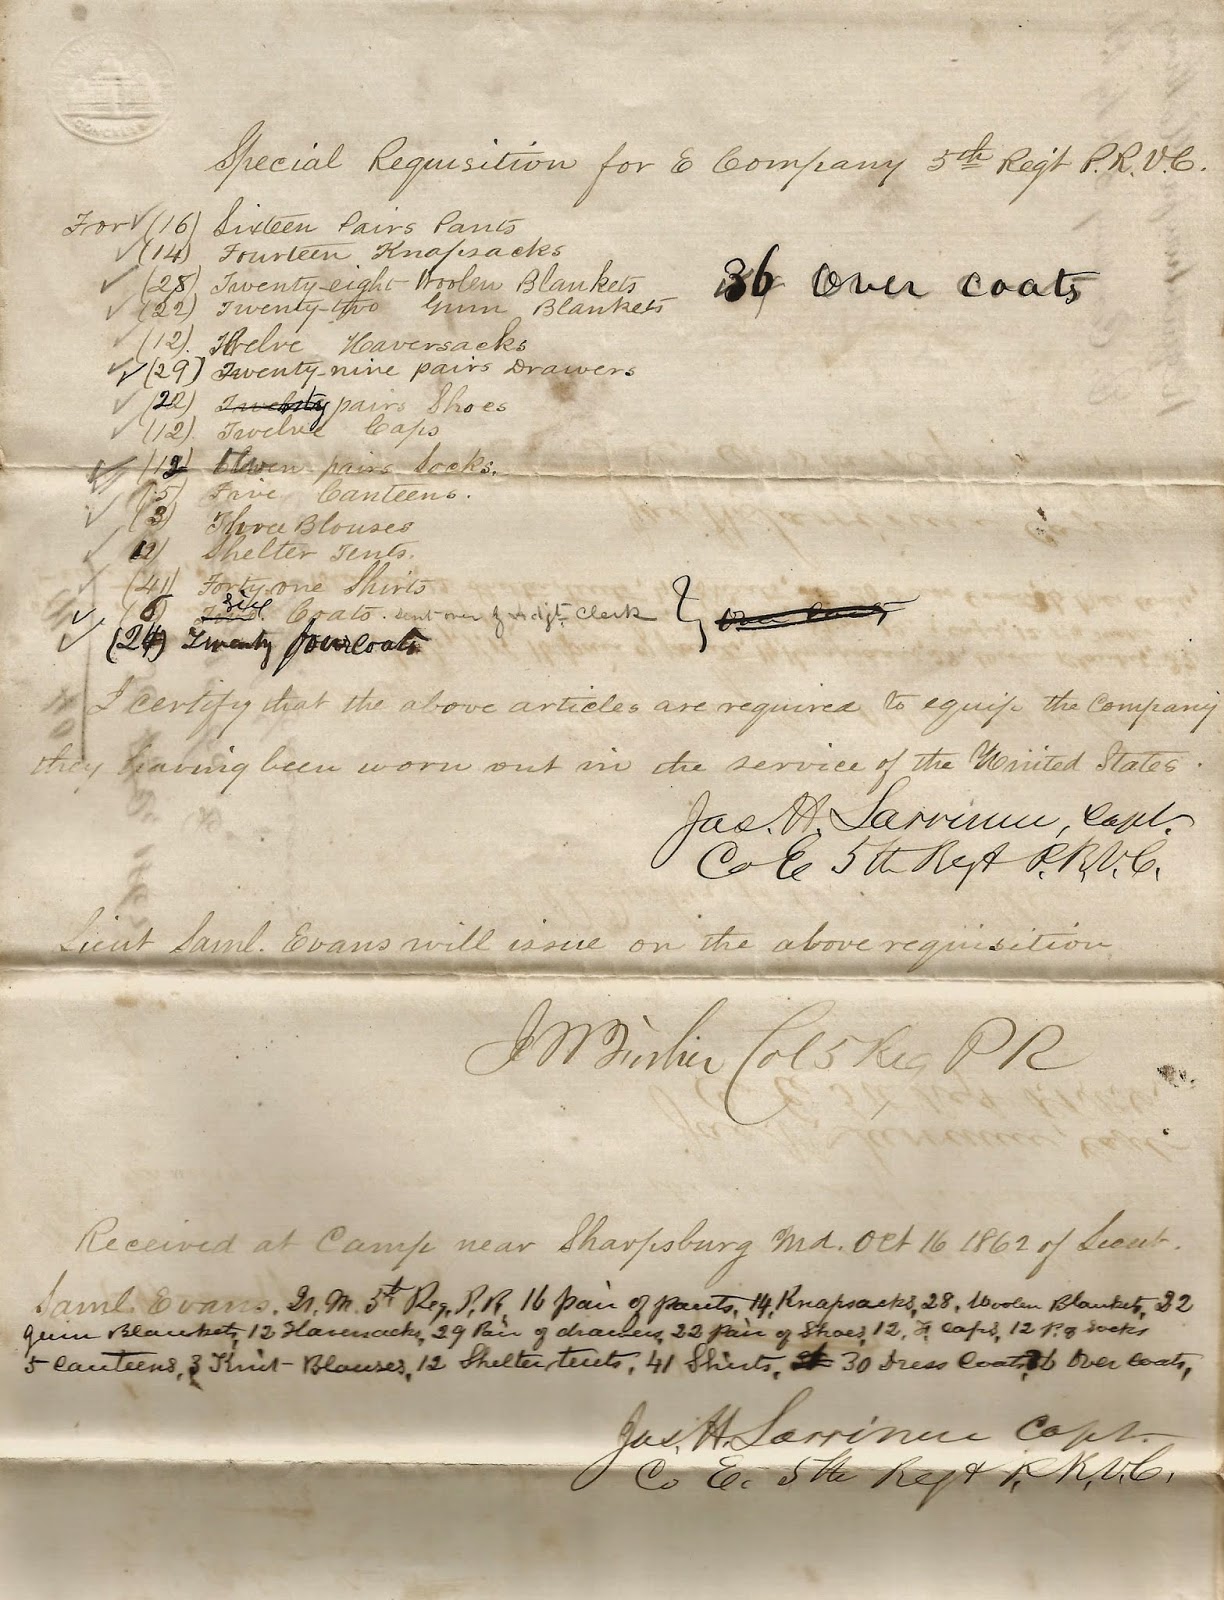 CONGRESS
Special Requisition for E Company 5th Regt P.R.V.C.
For (16) Sixteen Pairs Pants
(14) Fourteen Knapsacks
(28) Twenty-eight Woolen Blankets
36 Over coats
(22) Twenty-two Gum Blankets
(12) Twelve Haversacks
(29) Twenty-nine pairs Drawers
(22) Twenty pairs Shoes
(12) Twelve Caps
(12) pairs Socks.
(5) Five Canteens.
(3) Three Blouses
12 Shelter Tents.
(41) Forty-one Shirts
(6) Six Coats. sent over by Adjt. Clerk
Over coats
(24) Twenty four coats
I certify that the above articles are required to equip the Company
they having been worn out in the service of the United States.
Jas. H. Larrimer, Capt.
Co E 5th Regt P.R.V.C.
Lieut Saml. Evans will issue on the above requisition
J W Fisher Col 5 Reg P R
Received at Camp near Sharpsburg Md. Oct 16 1862 of Lieut.
Saml. Evans. Q. M. 5th Reg. P. R. 16 pair of pants, 14, Knapsacks, 28, Woolen Blankets, 22
gum Blankets, 12 Haversacks, 29 Pair of drawers, 22 pair of Shoes, 12, F. Caps, 12 P. of socks
5 Canteens, 3 Knit-Blouses, 12 Shelter tents, 41 Shirts, 30 Dress Coats, 36 Over coats,
Jas. H. Larrimer Capt.
Co E. 5th Regt P.R.V.C.